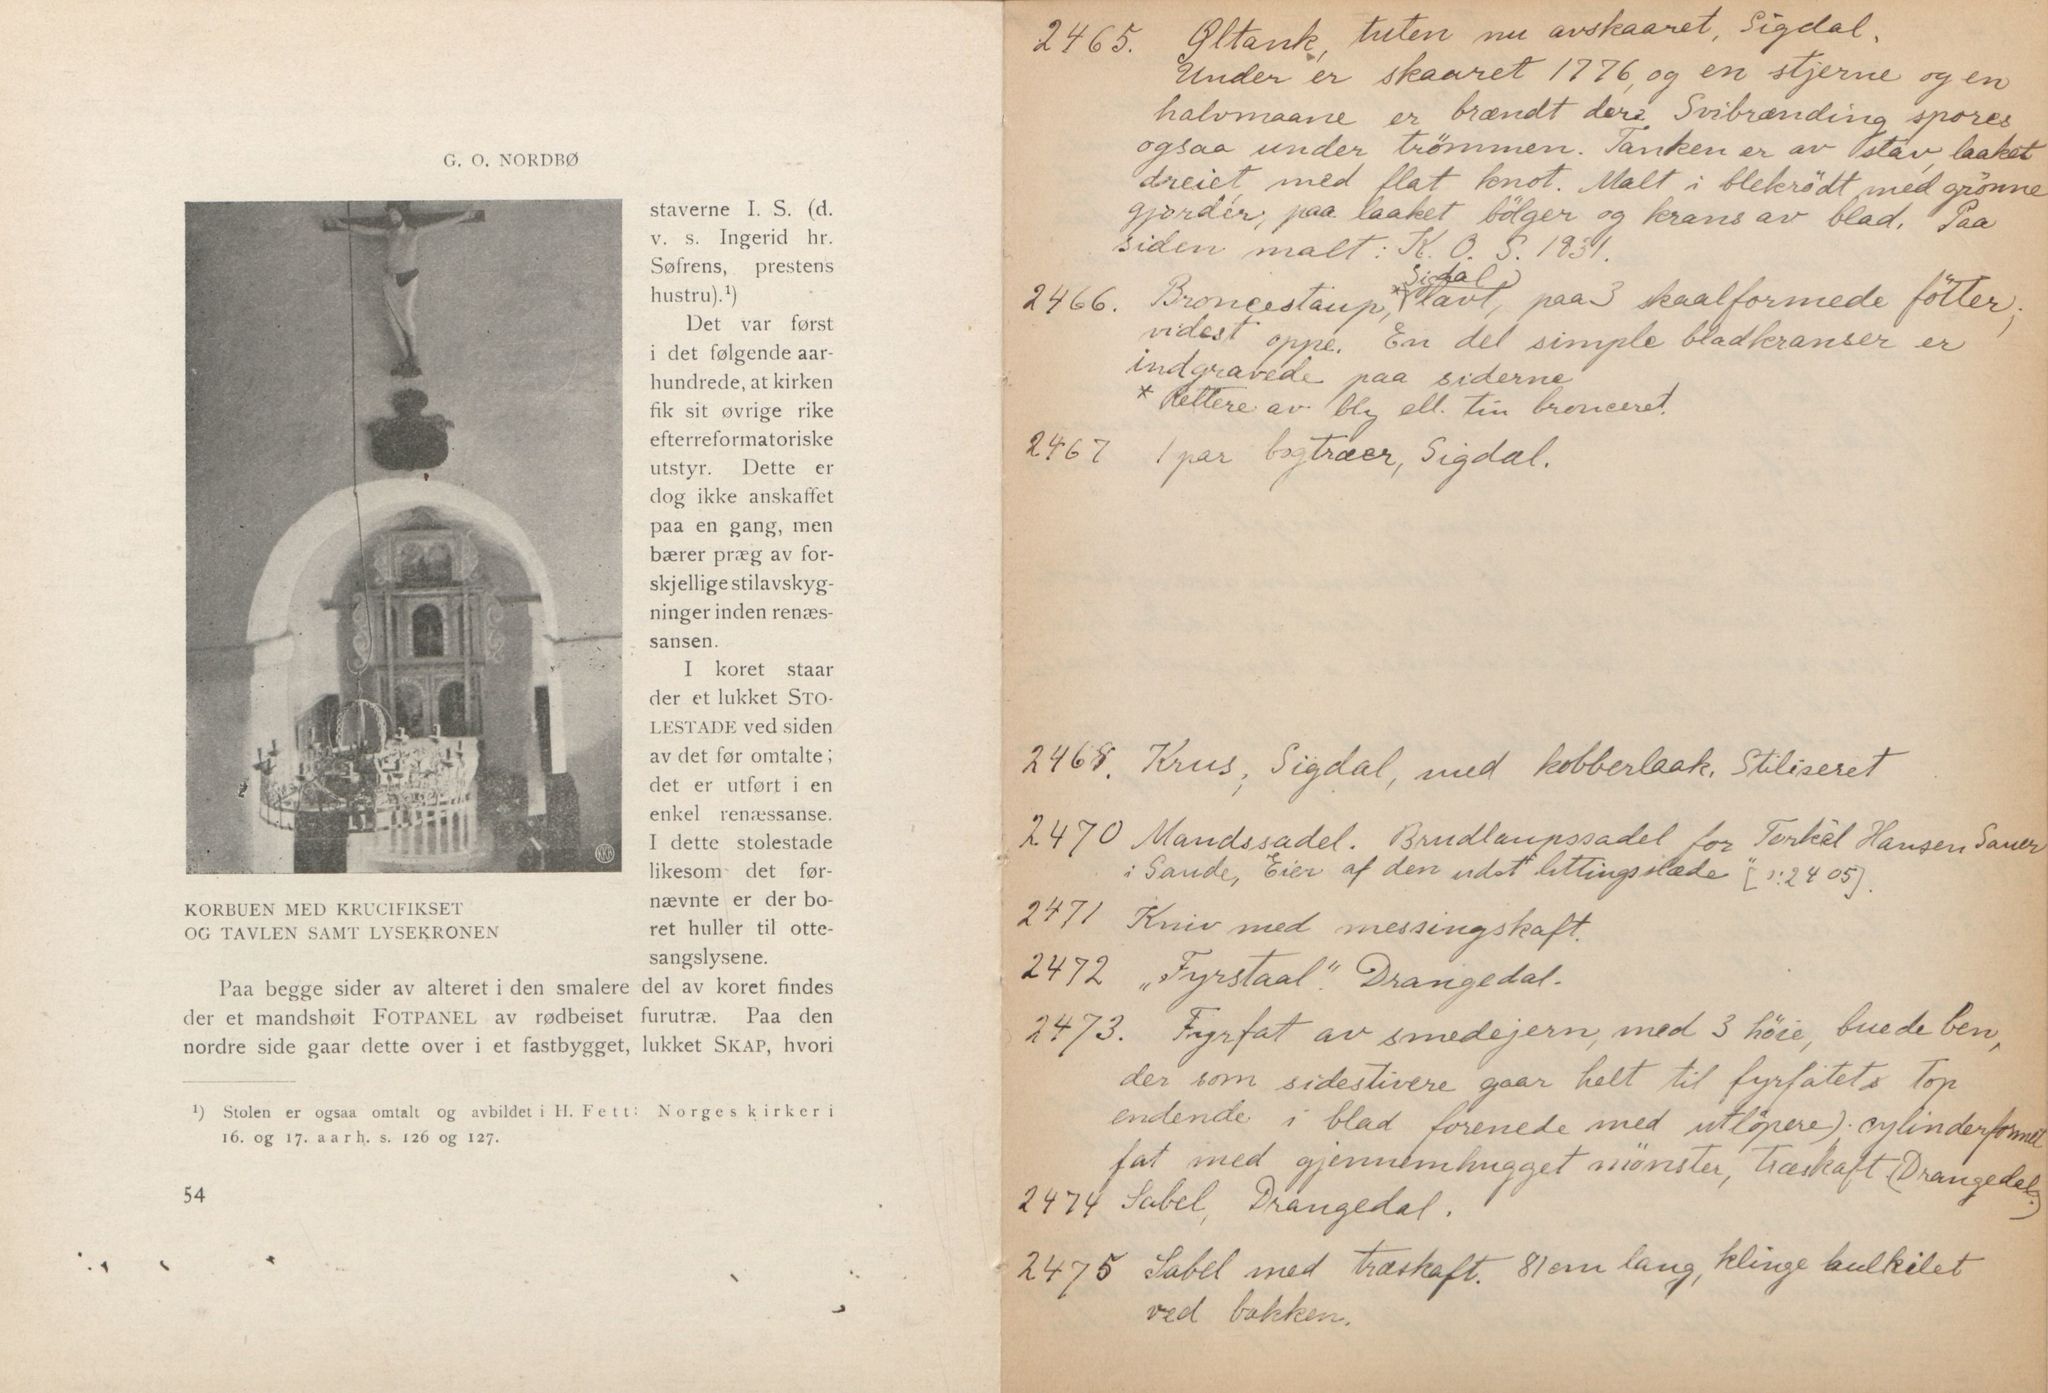 G. O. NORDBØ
staverne I. S. (d.
v. s. Ingerid hr.
Søfrens, prestens
hustru).¹)
Det var først
i det følgende aar-
hundrede, at kirken
fik sit øvrige rike
efterreformatoriske
utstyr. Dette er
dog ikke anskaffet
paa en gang, men
bærer præg av for-
skjellige stilavskyg-
ninger inden renæs-
sansen.
I koret staar
der et lukket STO-
LESTADE ved siden
av det før omtalte;
det er utført i en
enkel renæssanse.
I dette stolestade
likesom det før-
nævnte er der bo-
ret huller til otte-
sangslysene.
KORBUEN MED KRUCIFIKSET
OG TAVLEN SAMT LYSEKRONEN
Paa begge sider av alteret i den smalere del av koret findes
der et mandshøit FOTPANEL av rødbeiset furutræ. Paa den
nordre side gaar dette over i et fastbygget, lukket SKAP, hvori
¹) Stolen er ogsaa omtalt og avbildet i H. Fett: Norges kirker i
16. og 17. aarh. s. 126 og 127.
54
2465. Øltank, tuten nu avskaaret, Sigdal.
Under er skaaret 1776, og en stjerne og en
halvmaane er brændt der. Svibrænding spores
ogsaa under trömmen. Tanken er av stav, laaket
dreiet med flat knot. Malt i blekrödt med grönne
gjorder, paa laaket bölger og krans av blad. Paa
siden malt: K. O. S. 1931.
Sigdal
2466. Broncestaup, * lavt, paa 3 skaalformede fötter,
videst oppe. En del simple bladkranser er
indgravede paa siderne
* Rettere av bly ell. tin bronceret.
2467 1 par bogtræer, Sigdal.
2468. Krus, Sigdal, med kobberlaak. Stiliseret
2470 Mandssadel. Brudlaupssadel for Torkel Hansen Sauer
i Sande, "Eier af den udst littingsslæde" [n: 2405].
2471 Kniv med messingskaft.
2472 „Fyrstaal". Drangedal.
2473. Fyrfat av smedejern, med 3 höie, buede ben,
der som sidestivere gaar helt til fyrfatets top
endende i blad forenede med utlöpere); cylinderformet
fat med gjennemhugget mönster, træskaft (Drangedal.)
2474 Sabel, Drangedal.
2475 Sabel med træskaft. 81 cm lang, klinge hulkilet
ved bakken.